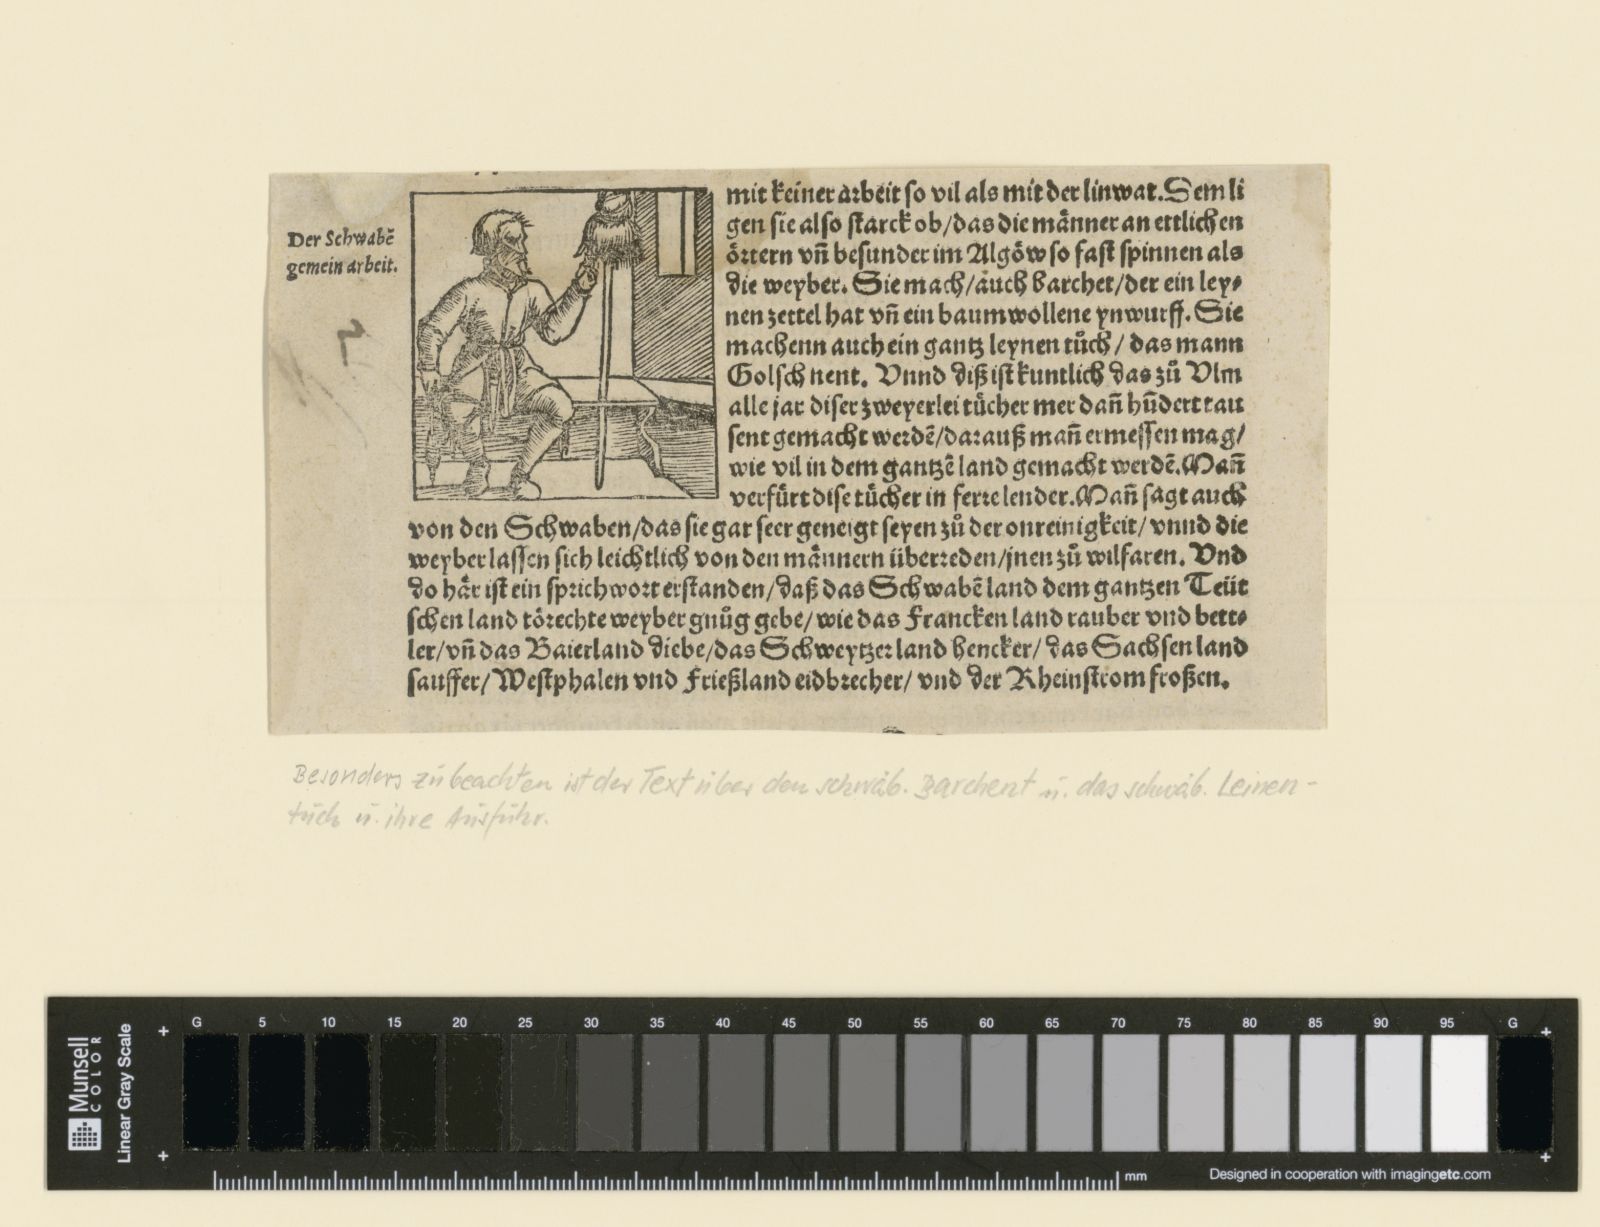 Der Schwabẽ
gemein arbeit.
mit keiner arbeit so vil als mit der linwat. Dem li
gen sie also starck ob/das die männer an ettlichen
örtern vñ besunder im Algöw so fast spinnen als
die weyber. Sie mach/auch barchet/der ein ley⸗
nen zettel hat vñ ein baumwollene ynwurff. Sie
machenn auch ein gantz leynen tůch/ das mann
Golsch nent. Vnnd diß ist kuntlich das zů Vlm
alle jar diser zweyerlei tücher mer dañ hũdert tau
sent gemacht werdẽ/darauß mañ ermessen mag/
wie vil in dem gantzẽ land gemacht werdẽ. Mañ
verfürt dise tücher in ferre lender. Mañ sagt auch
von den Schwaben/das sie gar seer geneigt seyen zů der onreinigkeit/ vnnd die
weyber lassen sich leichtlich von den männern überreden/jnen zů wilfaren. Vnd
do här ist ein sprichwort erstanden/daß das Schwabẽ land dem gantzen Teüt
schen land törechte weyber gnůg gebe/ wie das Francken land rauber vnd bett⸗
ler/vñ das Baierland diebe/das Schweytzer land hencker/ das Sachsen land
sauffer/ Westphalen vnd Frießland eidbrecher/ vnd der Rheinstrom froßen.
Besonders zu beachten ist der Text über den schwäb. Barchent u. das schwäb. Leinen-
tuch u. ihre Ausfuhr.
Munsell
COLOR
Linear Gray Scale
G 5 10 15 20 25 30 35 40 45 50 55 60 65 70 75 80 85 90 95 G
mm
Designed in cooperation with imagingetc.com